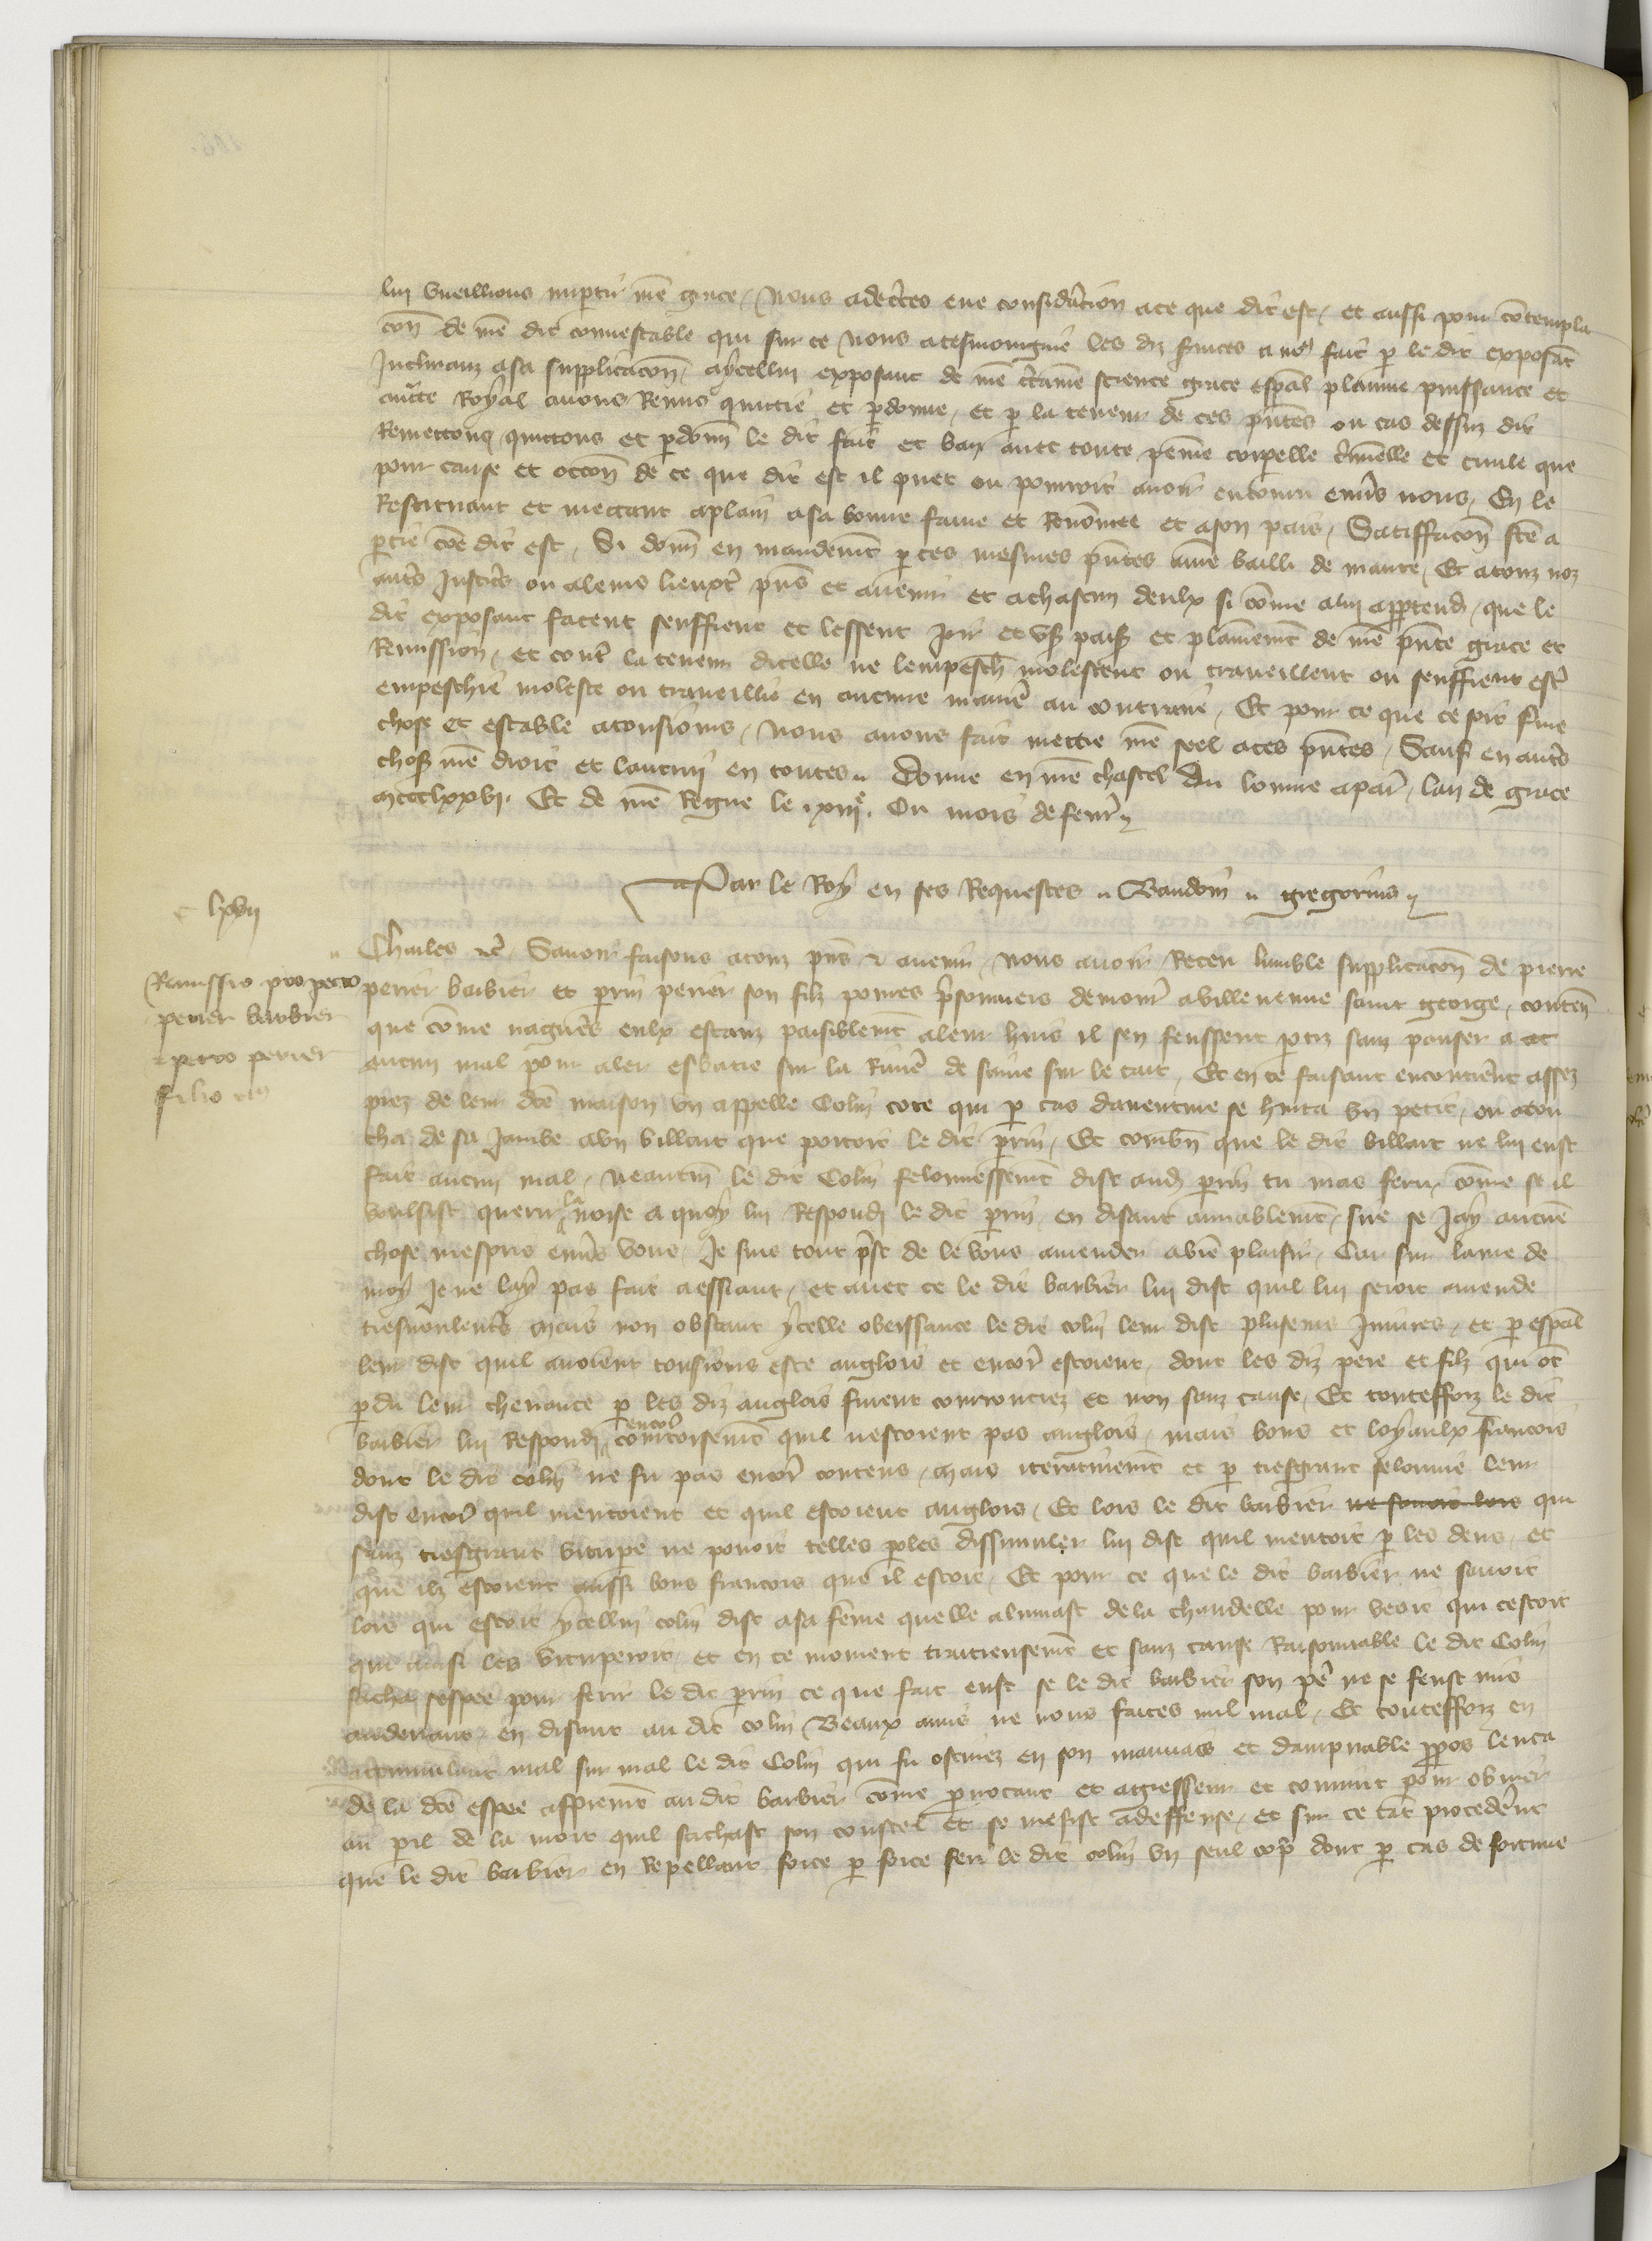 lui vueillions impartir nr̃e grace, Nous adecẽrtes eue considẽracion ace que dit est, et aussi pour cõtempla
cõn de nr̃e dit connestable qui sur ce nous atesmoingne les diz services a no9 fait p le dit exposãt
Inclinanz asa supplicacõn, aycellui exposant de nr̃e c̃taine science grace esp̃al plainne puissance et
auc̃te Royal avons Remis quittie et p̃donne, et p la teneur de ces p̃ntes ou cas dessuz dit
Remettons quittons et p̃donñ le dit fait et ban avec toute peinne corpelle c̃minelle et civile que
pour cause et occõn de ce que dit est il puet ou pourroit avoir encouru env̂s nous, En le
Restituant et mectant aplain asa bonne fame et Renõmee et ason pais, Satiffacõn fc̃e a
p̃tie cõe dit est, Si donñ en mandemt̃ p ces mesmes p̃ntes aunr̃e bailli de mante, Et atouz noz
aut̃s Justic̃s ou aleurs lieuxt̃ p̃ns et avenir et achascun deulx si cõme alui app̃tend, que le
dit exposant facent seuffrent et lessent joir et us̃ paisiblẽ et plainnemt̃ de nr̃e p̃nte grace et
Remission, et cont̃ la teneur dicelle ne lempesch̃ molestent ou traveillent ou seuffrent est̃
empeschie moleste ou traveillie en aucune manie᷑ au contraire, Et pour ce que ce soit ferme
chose et estable atousiours, Nous avons fait mettre nr̃e seel aces p̃ntes, Sauf en aut̃s
chos̃ nr̃e droit et lautruy en toutes,, Donne en nr̃e chastel du louvre apar̃, lan de grace
mccclxxvj. Et de nr̃e Regne le xiije. Ou mois de fevr̃
Par le Roy en ses Requestes ,, Vaudoin᷑ ,, gregorius
c lxvij
Charles ⁊c̃. Savoir faisons atouz p̃ns ⁊ avenir, Nous avoir Receu lumble supplicacõn de pierre
Remissio pro petro
perier barbier
⁊ petro perier
filio eius
perier barbier et perrin perier son filz povres p̃sonniers demour̃ avilleneuve saint george, conten̄
que cõme nagueres eulx estanz paisiblemt̃ aleur huis il sen feussent p̃tiz sanz penser a
aucun mal pour aler esbatre sur la Rivie᷑ de saine sur le tart, Et en ce faisant encontrẽnt assez
prez de leur dc̃e maison un appelle Colin cote qui p cas daventure se hurta un petit, ou atou
cha de sa jambe aun billart que portoit le dit perrin, Et combñ que le dit billart ne lui eust
fait aucun mal, neantm̃ le dit Colin felonnessemt̃ dist aud̃ perrin tu mas feru, cõme se il
voulsist querir la noise a quoy lui Respondi le dit perrin en disant amiablemt̃, sire se jay aucunẽ
chose mespris env̂s vous, Je sui tout p̃st de le vous amender a vr̃e plaisir, Car sur lame de
moy je ne lay pas fait aessiant, et avec ce le dit barbier lui dist quil lui seroit amende
tresvoulent̃s mais non obstant ycelle obeissance le dit colin leur dist plusieurs Iniures, et p esp̃al
leur dist quil avoient tousiours este anglois et encor̃ estoient, dont les diz pere et filz qui õt
p̃du leur chevance p les diz anglois furent courrouciez et non sanz cause, Et touteffoiz le dit
barbier lui Respondi encor̃ courtoisemt̃ quil nestoient pas anglois, mais bons et loyaulx francois
dont le dit colin ne fu pas encor̃ contens, mais iterativemt̃ et p tresgrant felonnie leur
dist encor̃ quil mentoient et quil estoient anglois, Et lors le dit barbier ne savoit lors qui
sanz tresgrant vitupe ne pouoit telles p̃oles dissimuler lui dist quil mentoit p les dens, et
que ilz estoient aussi bons francois que il estoit, Et pour ce que le dit barbier ne savoit
lors qui estoit ycellui colin dist asa fẽme quelle alumast de la chandelle pour veoir qui cestoit
qui ainsi les vituperoit, et en ce moment traiteusemt̃ et sanz cause Raisonnable le dit Colin
sacha sespee pour ferir le dit perrin ce que fait eust se le dit barbier son pe᷑ ne se feust mis
audevant, en disant au dit colin Beaux amis ne nous faites nul mal, Et touteffoiz en
accumulant mal sur mal le dit Colin qui fu ostinez en son mauvais et dampnable p̃pos lenca
de la dc̃e espee asprement au dit barbier cõme p̃vocant et agresseur et convint pour obvier
au p̃il de la mort quil sachast son coustel et se meist adeffense, et sur ce tãt procedẽrent
que le dit barbier en Repellant force p force feri le dit colin un seul cop̃ dont p cas de fortune